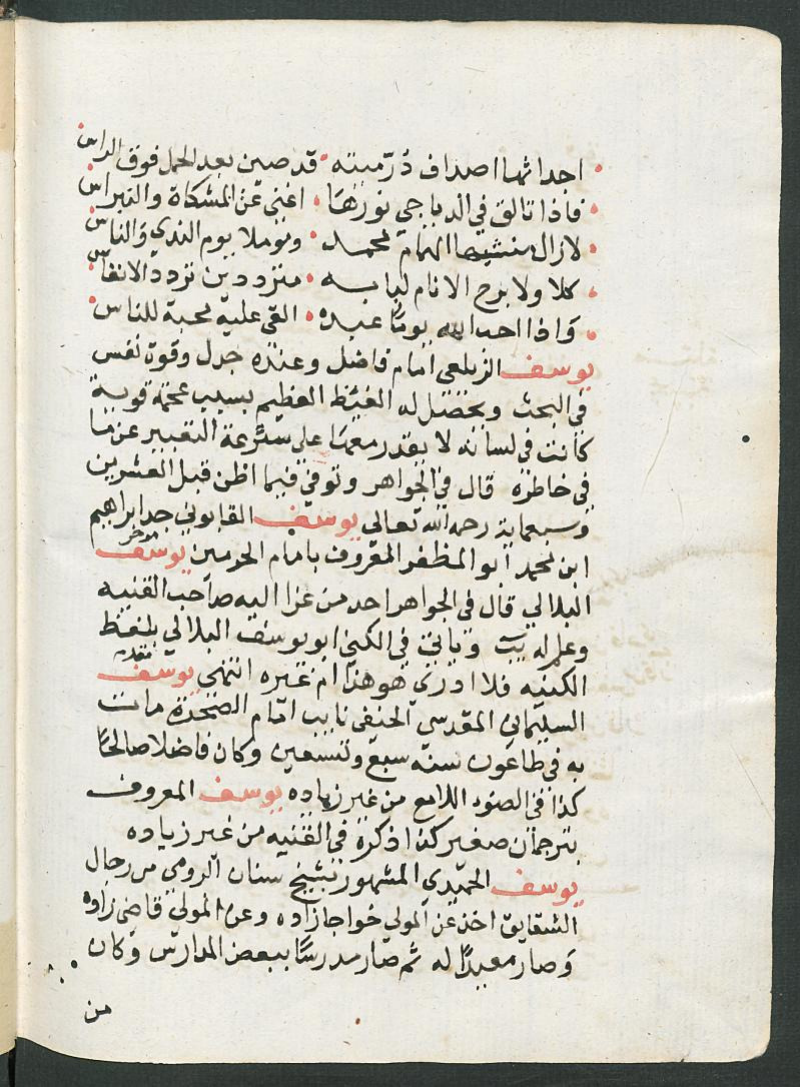 اجداثها اصداف در ميته قد صين بعد الحمل فوق الراس
فاذا تالق في الدياجي نورها اغنى عن المشكاة والنبراس
لازال منشيها الهمام محمد ومؤملا يوم الندي والناس
كلا ولا برح الانام لبابه متردد ين تردد الانفاس
واذا احب الله يوما عبده القى عليه محبة للناس
يوسف الزيلعى امام فاضل وعنده جدل وقوة نفس
في البحث ويحصل له الغيظ العظيم بسبب عجمة قوية
كانت في لسانه لا يقدر معها على سرعة التعبير عن ما
في خاطره قال في الجواهر وتوفي فيما اظن قبل العشرين
وسبعماية رحمه الله تعالى يوسف القانونى جد ابراهيم
ابن محمد ابو المظفر المعروف بامام الحرمين يوسف
البلالي قال في الجواهر احد من عزا اليه صاحب القنيه
وعلم له يب وياتى في الكنى ابو يوسف البلالي بلفظ
الكنيه فلا ادري هو هذا ام غيره انتهى يوسف
السليمانى المقدسي الحنفى نايب امام الصخرة مات
به في طاعون سنه سبع وتسعين وكان فاضلا صالحا
كذا في الضوء اللامع من غير زياده يوسف المعروف
بترجمان صغير كذا ذكره في القنيه من غير زياده
يوسف الحميدي المشهور بشيخ سنان الرومي من رجال
الشقايق اخذ عن المولى خواجا زاده وعن المولى قاضي زاده
وصار معيدا له ثم صار مدرسا ببعض المدارس وكان
من